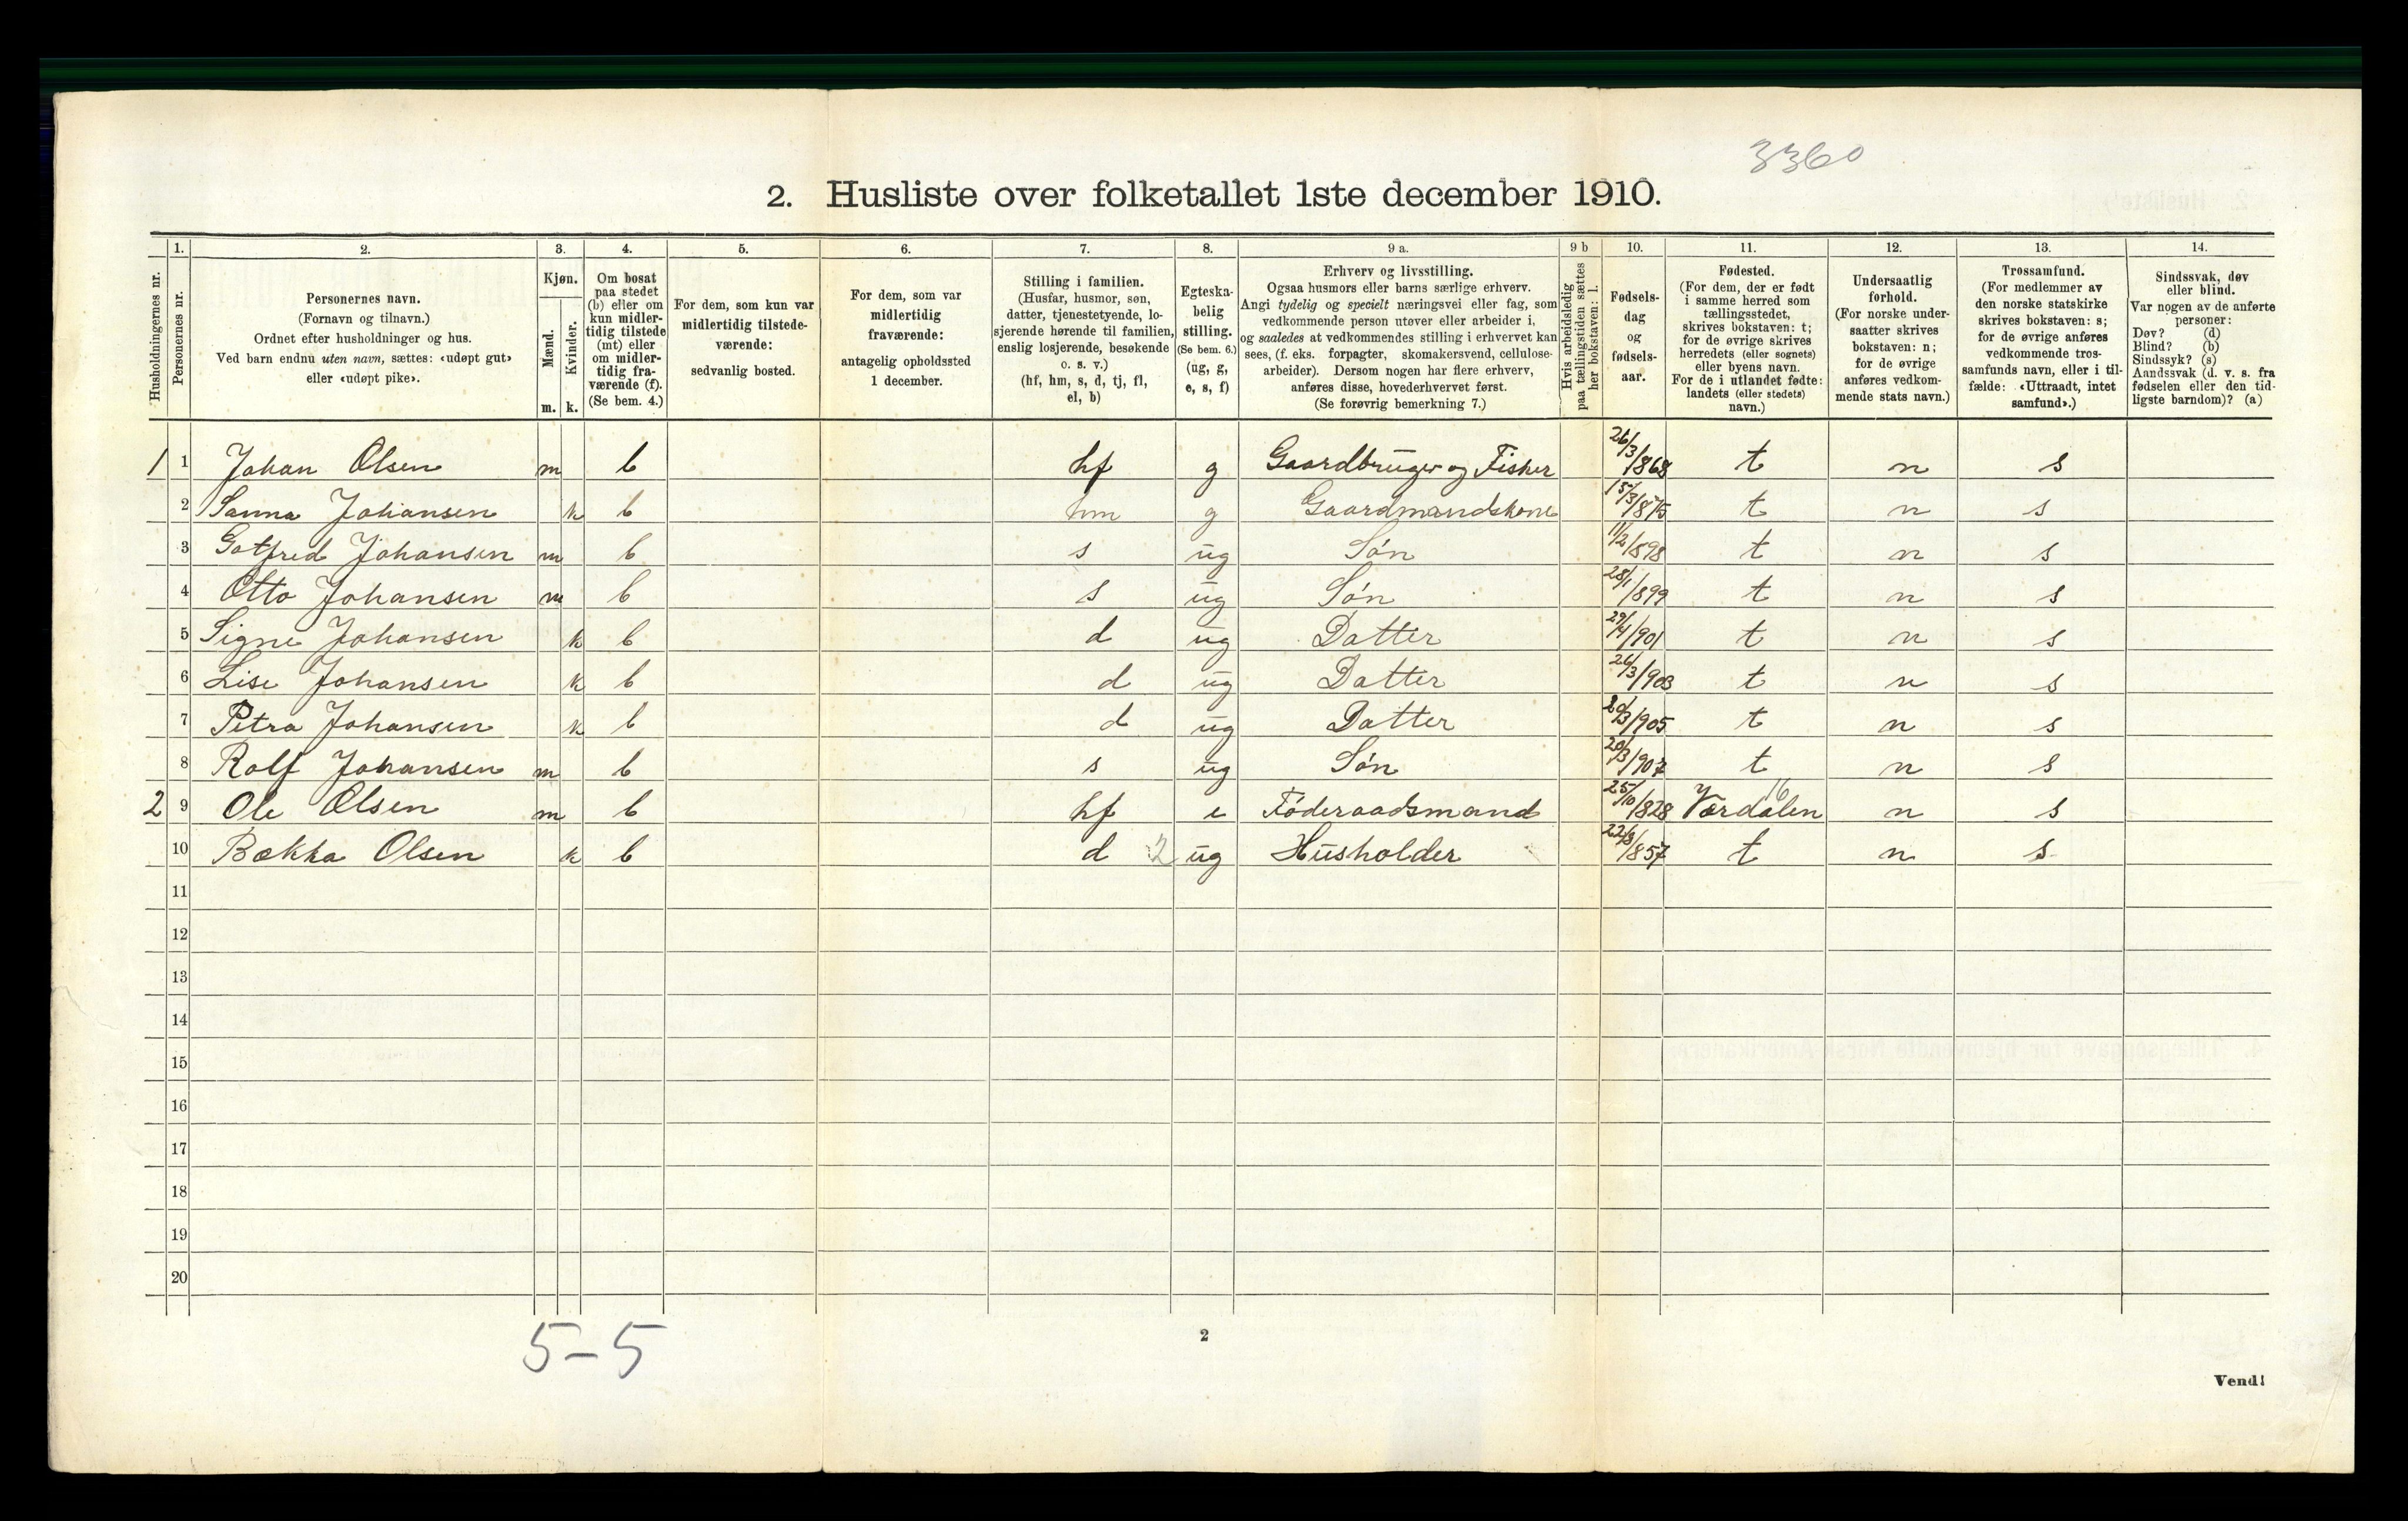 3360
2. Husliste over folketallet 1ste december 1910.
Husholdningernes nr.
1. Personernes nr.
2. Personernes navn.
(Fornavn og tilnavn.)
Ordnet efter husholdninger og hus.
Ved barn endnu uten navn, sættes: «udøpt gut»
eller «udøpt pike».
3. Kjøn.
Mænd. m.
Kvinder. k.
4. Om bosat
paa stedet
(b) eller om
kun midler-
tidig tilstede
(mt) eller
om midler-
tidig fra-
værende (f).
(Se bem. 4.)
5. For dem, som kun var
midlertidig tilstede-
værende:
sedvanlig bosted.
6. For dem, som var
midlertidig
fraværende:
antagelig opholdssted
1 december.
7. Stilling i familien.
(Husfar, husmor, søn,
datter, tjenestetyende, lo-
sjerende hørende til familien,
enslig losjerende, besøkende
o. s. v.)
(hf, hm, s, d, tj, fl,
el, b)
8. Egteska-
belig
stilling.
(Se bem. 6.)
(ug, g,
e, s, f)
9 a. Erhverv og livsstilling.
Ogsaa husmors eller barns særlige erhverv.
Angi tydelig og specielt næringsvei eller fag, som
vedkommende person utøver eller arbeider i,
og saaledes at vedkommendes stilling i erhvervet kan
sees, (f. eks. forpagter, skomakersvend, cellulose-
arbeider). Dersom nogen har flere erhverv,
anføres disse, hovederhvervet først.
(Se forøvrig bemerkning 7.)
9 b Hvis arbeidsledig
paa tællingstiden sættes
her bokstaven: l.
10. Fødsels-
dag
og
fødsels-
aar.
11. Fødested.
(For dem, der er født
i samme herred som
tællingsstedet,
skrives bokstaven: t;
for de øvrige skrives
herredets (eller sognets)
eller byens navn.
For de i utlandet fødte:
landets (eller stedets)
navn.)
12. Undersaatlig
forhold.
(For norske under-
saatter skrives
bokstaven: n;
for de øvrige
anføres vedkom-
mende stats navn.)
13. Trossamfund.
(For medlemmer av
den norske statskirke
skrives bokstaven: s;
for de øvrige anføres
vedkommende tros-
samfunds navn, eller i til-
fælde: «Uttraadt, intet
samfund».)
14. Sindssvak, døv
eller blind.
Var nogen av de anførte
personer:
Døv? (d)
Blind? (b)
Sindssyk? (s)
Aandssvak (d. v. s. fra
fødselen eller den tid-
ligste barndom)? (a)
1 1 Johan Olsen m b hf g Gaardbruger og Fisker 26/3/1868 t n s
2 Sanna Johansen k b hm g Gaardmandskone 15/3/1875 t n s
3 Gotfred Johansen m b s ug Søn 11/2/1898 t n s
4 Otto Johansen m b s ug Søn 28/1/1899 t n s
5 Signe Johansen k b d ug Datter 29/4/901 t n s
6 Lise Johansen k b d ug Datter 26/3/903 t n s
7 Petra Johansen k b d ug Datter 20/3/905 t n s
8 Rolf Johansen m b s ug Søn 20/3/907 t n s
2 9 Ole Olsen m b hf e Føderaadsmand 25/10/1828 Værdalen 16 n s
10 Bækka Olsen k b d 2 ug Husholder 22/8/1857 t n s
11
12
13
14
15
16
17
18
19
20
5-5
2
Vend!